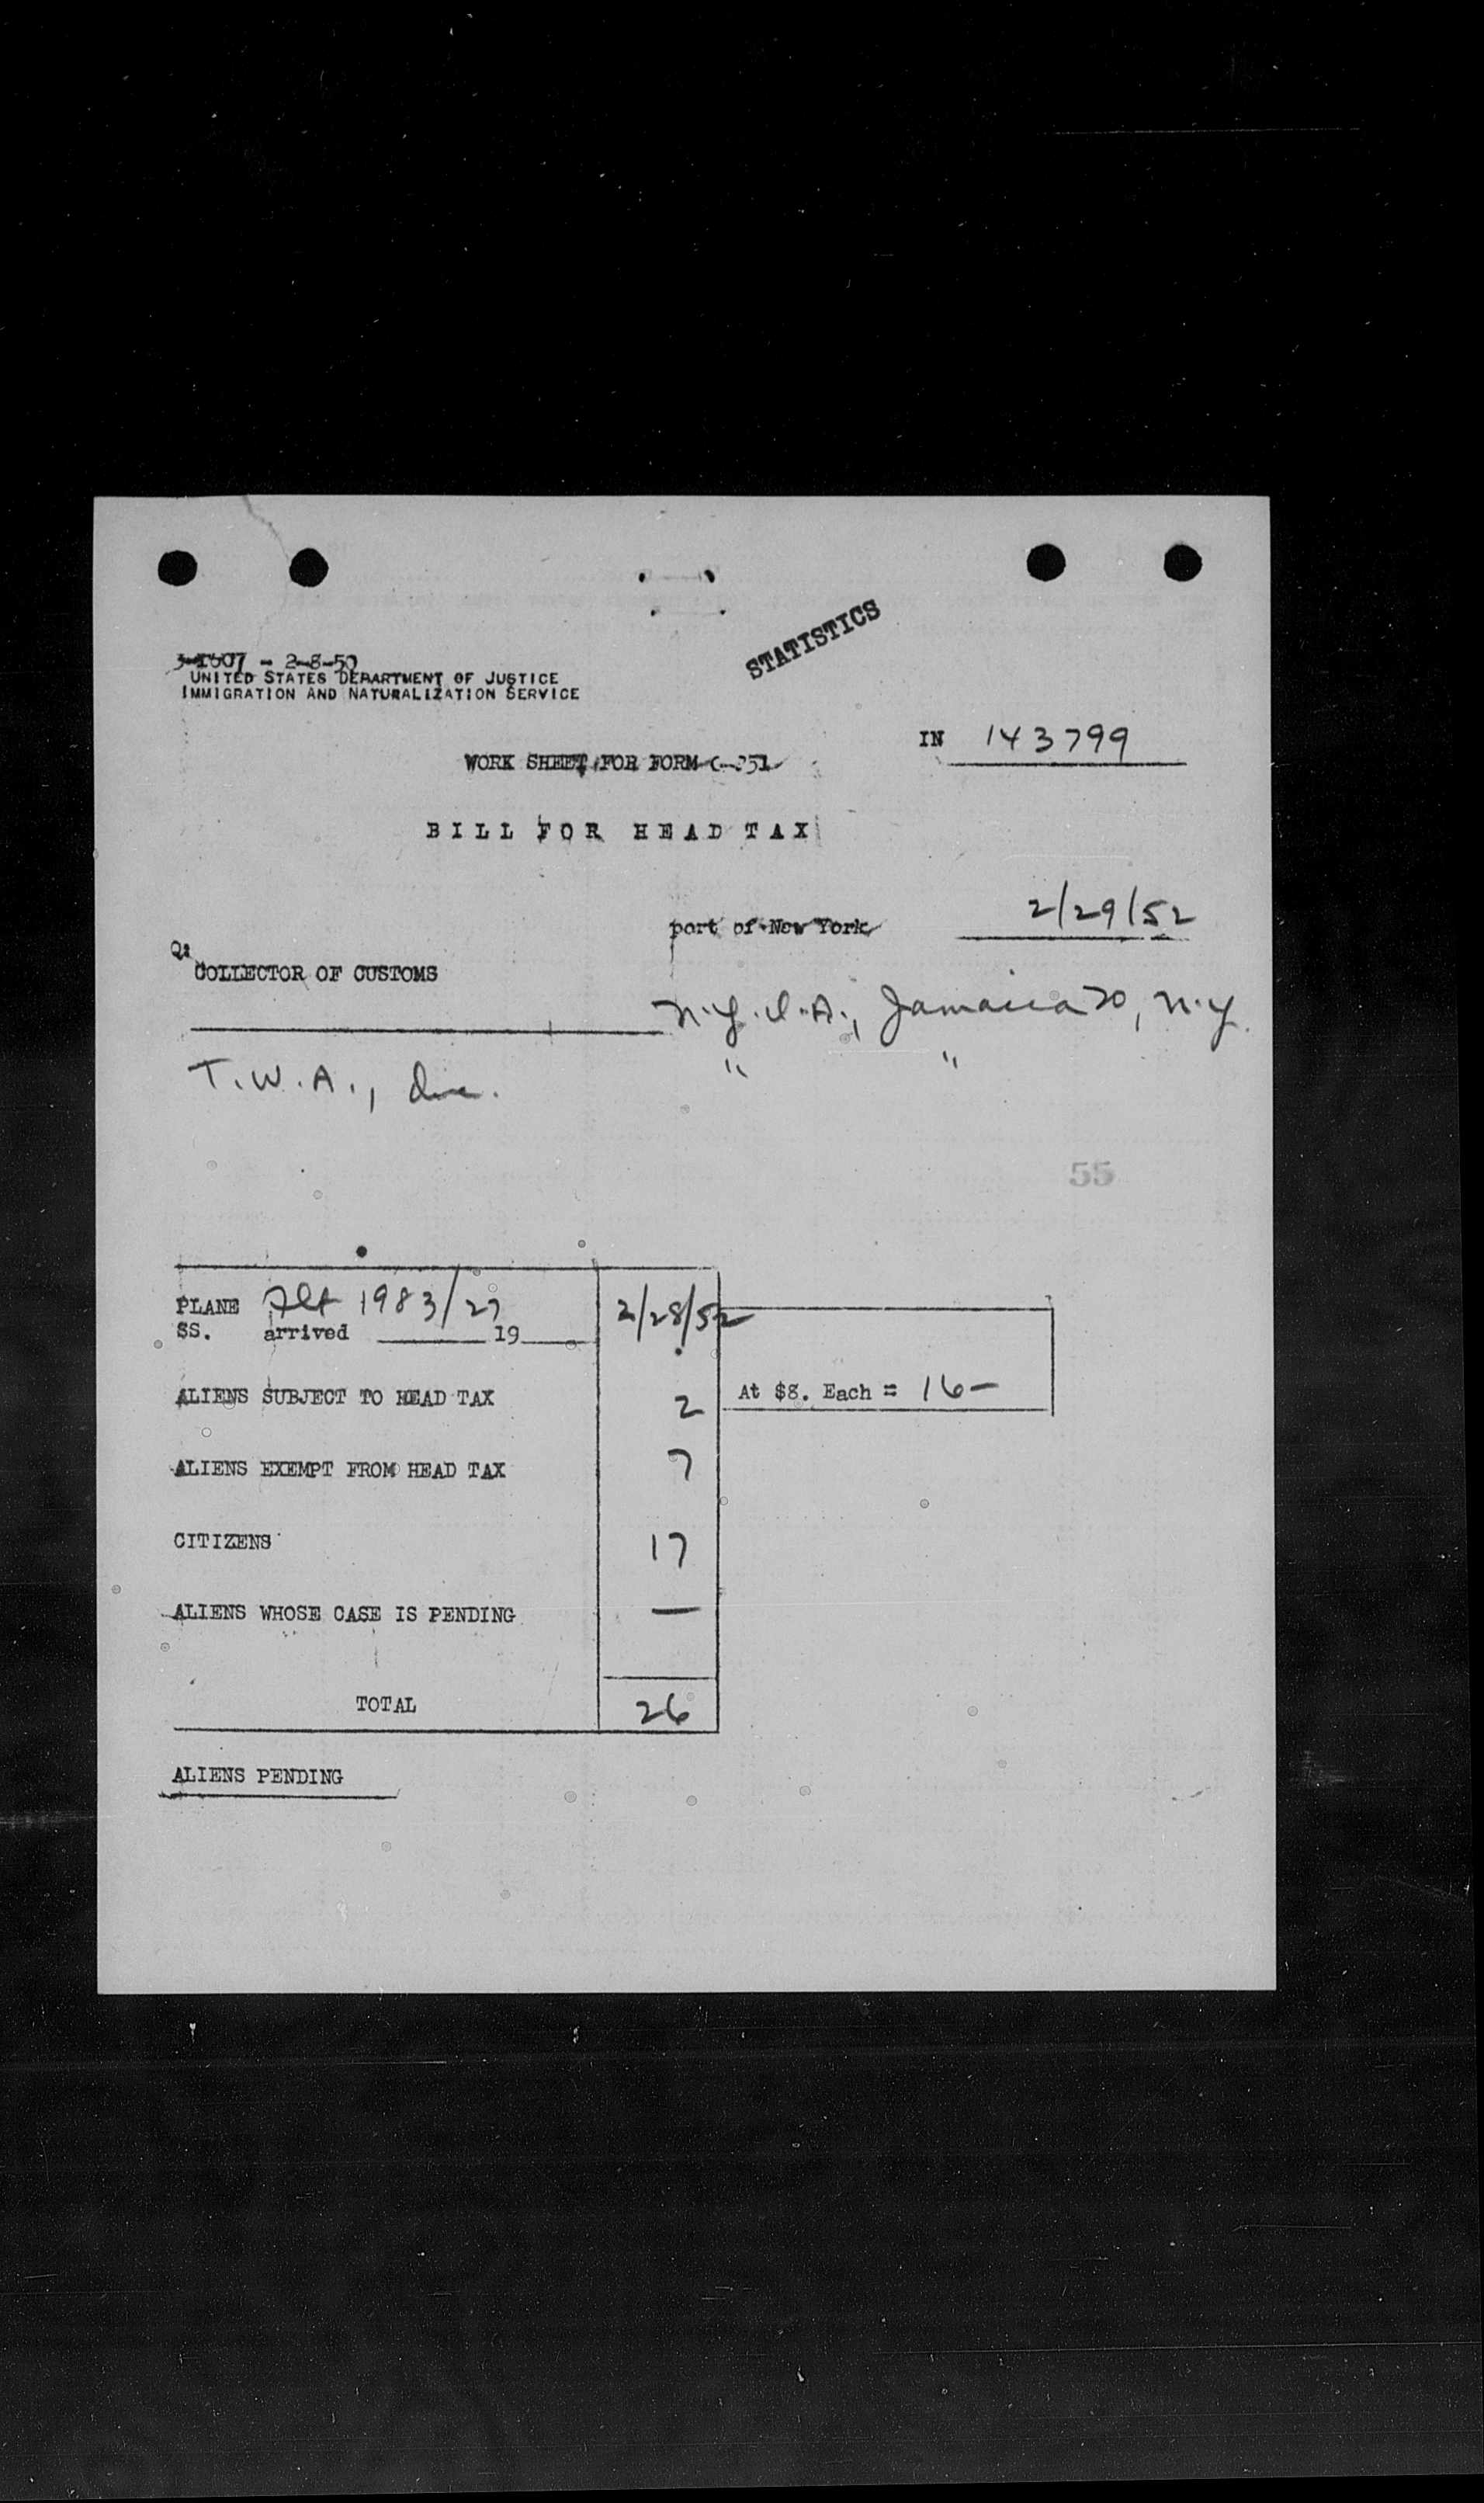 STATISTICS
3-1607 - 2-8-50
UNITED STATES DEPARTMENT OF JUSTICE
IMMIGRATION AND NATURALIZATION SERVICE
IN 143799
WORK SHEET FOR FORM C-251
BILL FOR HEAD TAX
port of New York 2/29/52
COLLECTOR OF CUSTOMS
N.Y.I.A., Jamaica 30, N.Y.
T.W.A., Inc. " "
55
PLANE Flt 1983/27 2/28/52
SS. arrived 19
ALIENS SUBJECT TO HEAD TAX 2 At $8. Each = 16-
ALIENS EXEMPT FROM HEAD TAX 7
CITIZENS 17
ALIENS WHOSE CASE IS PENDING —
TOTAL 26
ALIENS PENDING